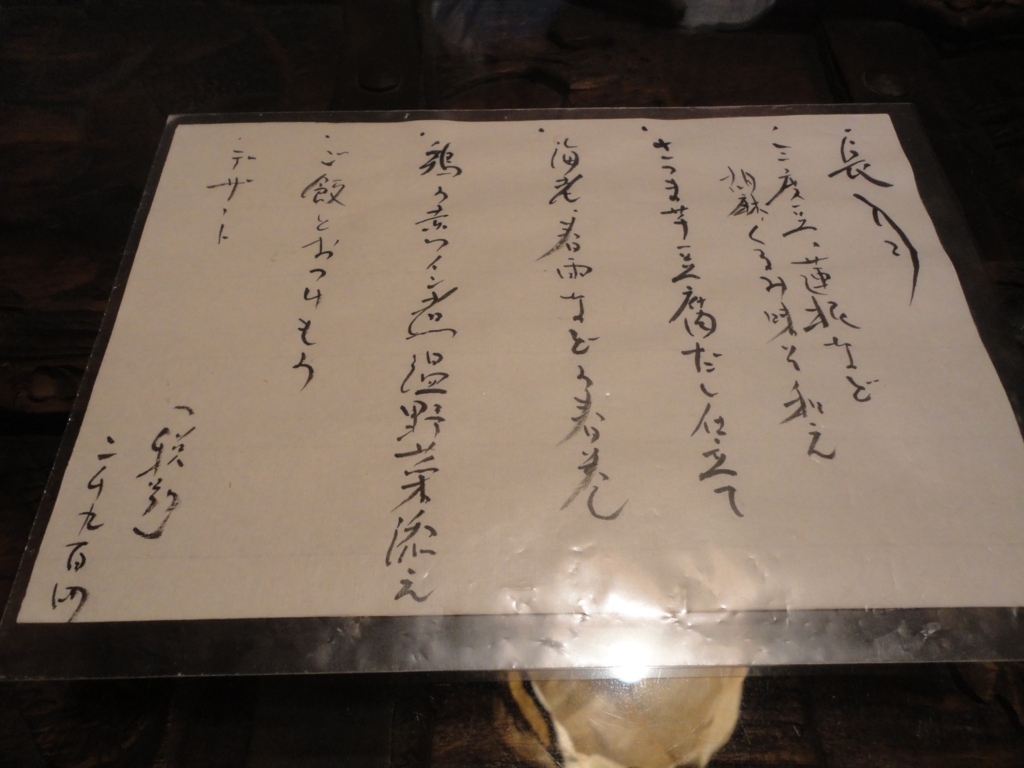 長月
・三度豆、蓮根など
胡麻、くるみ味そ和え
・さつま芋豆腐だし仕立て
・海老、春雨などの春巻し
・鶏の赤ワイン煮温野菜添え
・ご飯とおつけもの
・デザート
二千九百円